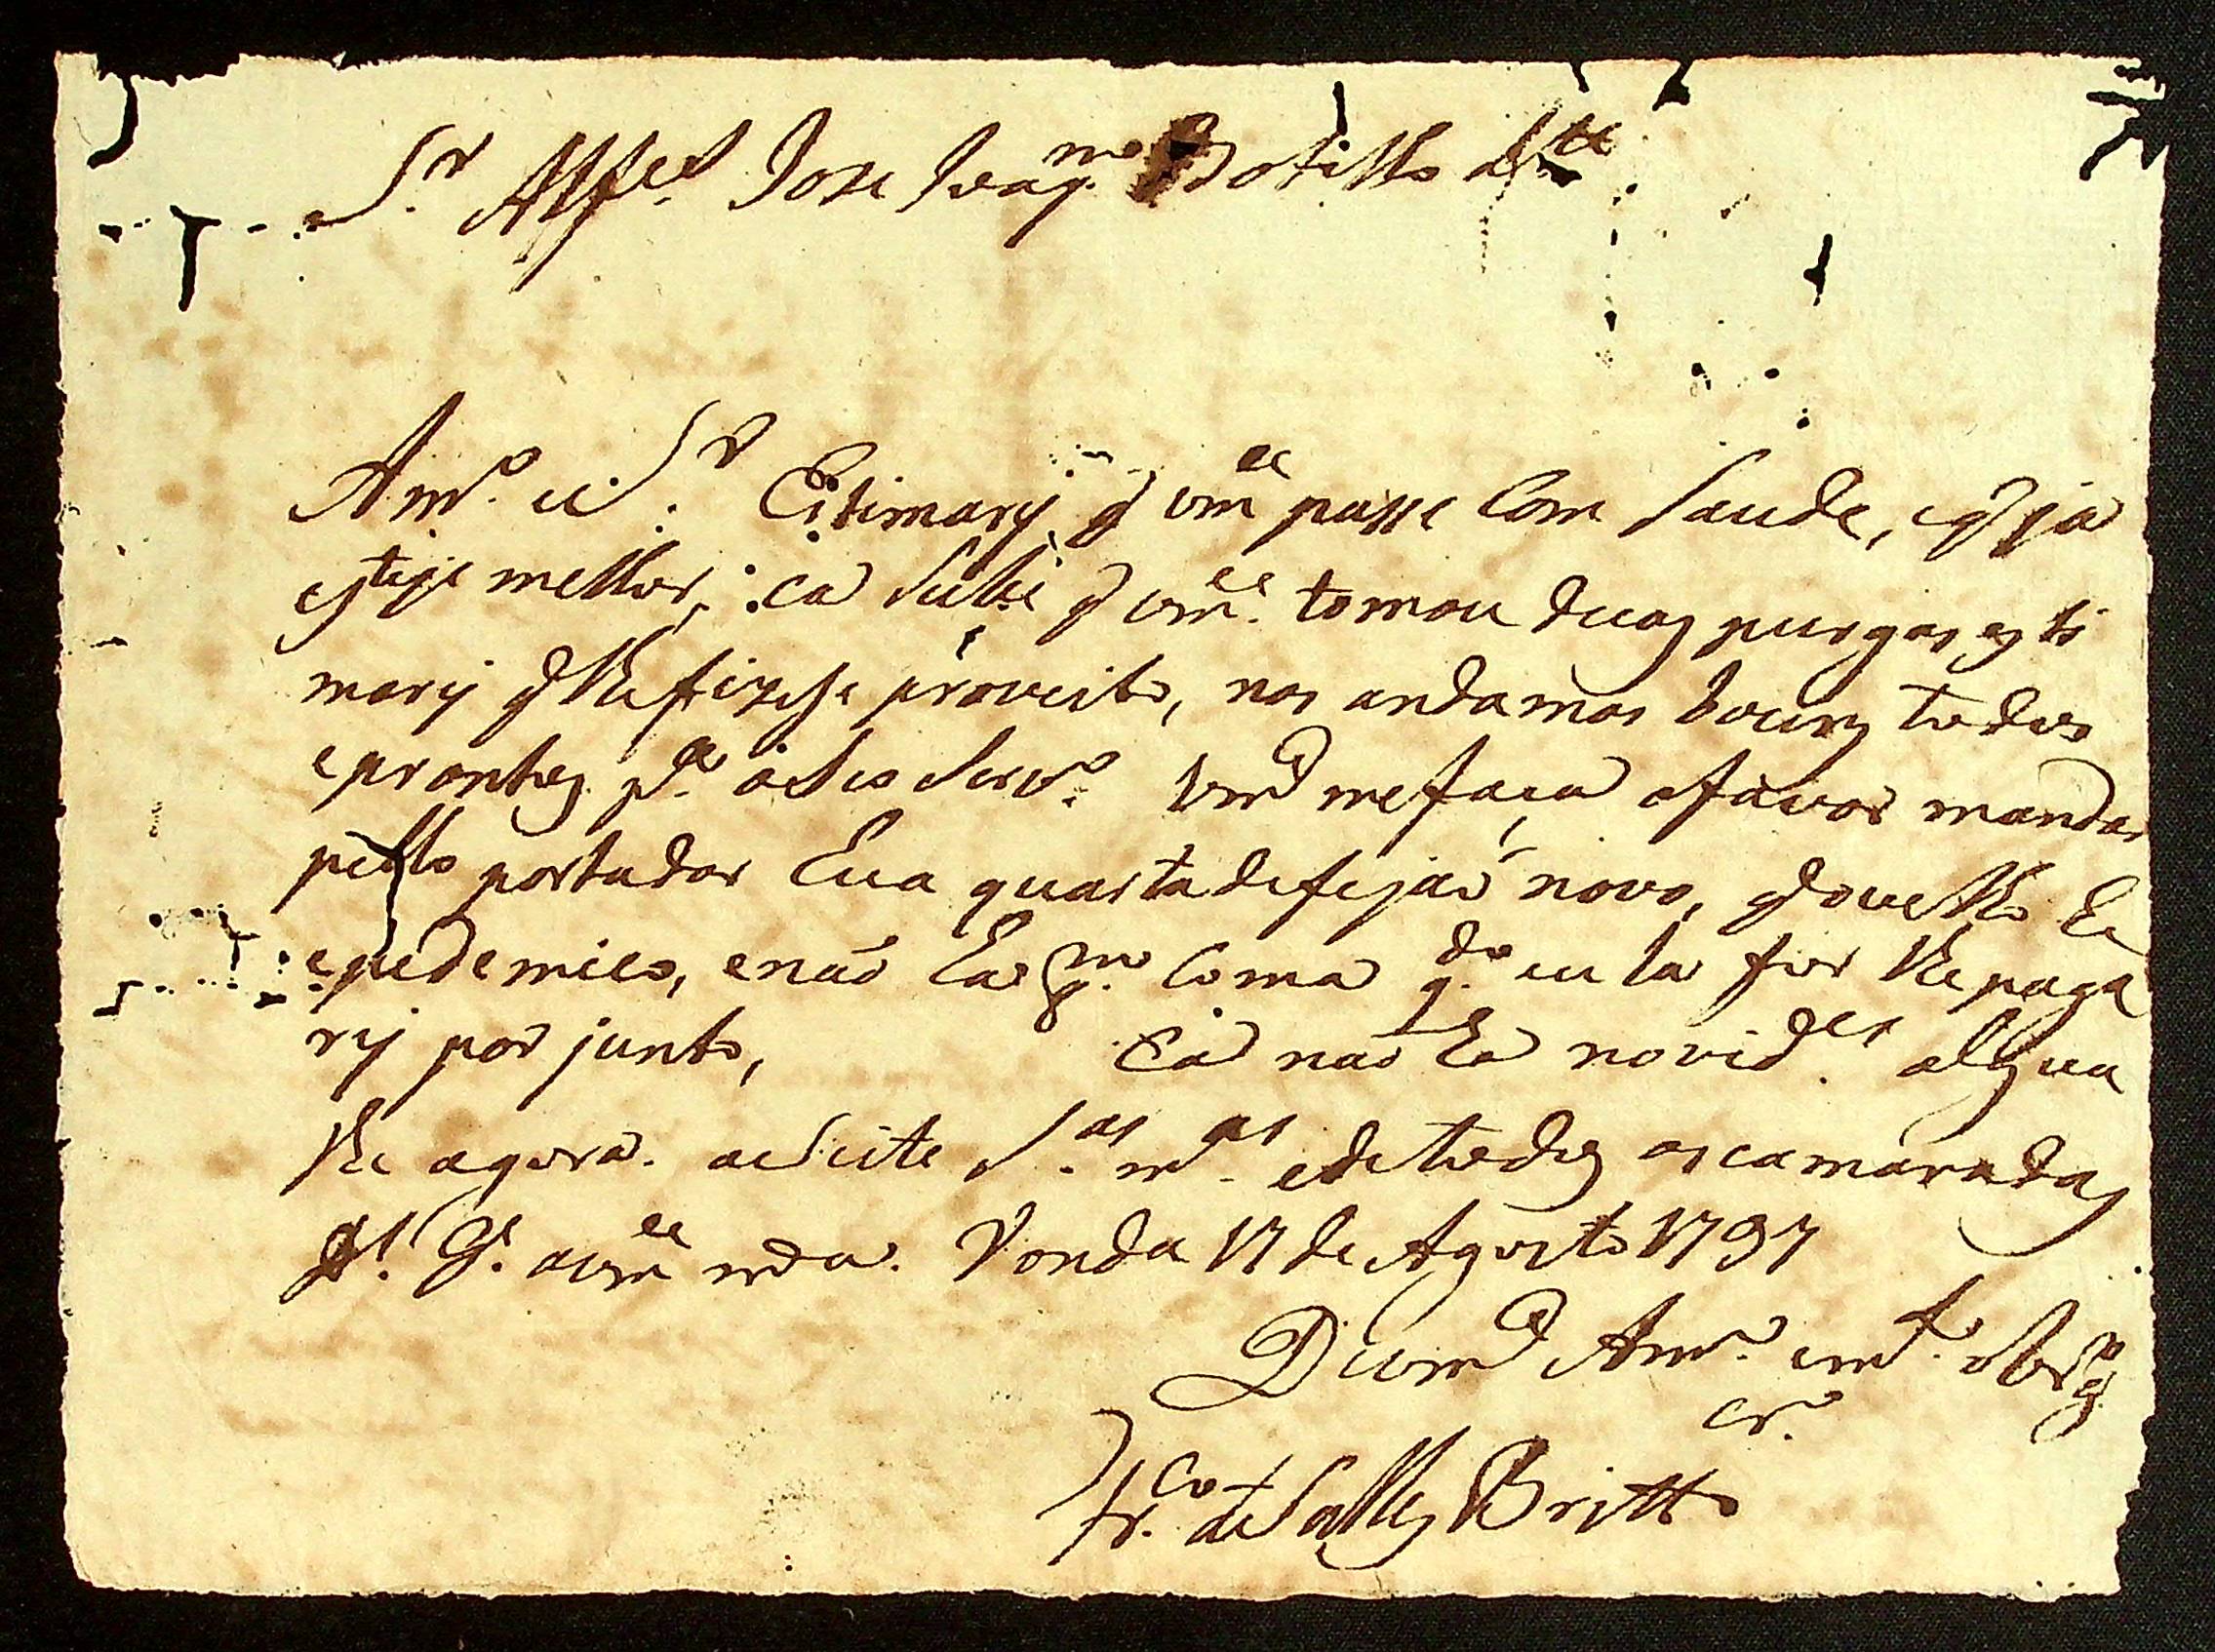 S.r Alf.es Joze Joaq.mo Botilho
Am.o e S.r Estimarej q vm.ce passe Com Saude, eq ja
esteje melhor, ca Subi q vm.ce tomou duas purgas esti
marej q lhe fizese proveito, nos andamos bouns todos
eprontos p.a oSeo Serv.o Vm.ce mefaça ofavor mandar
pello portador hua quarta defejaõ novo, q ovelho he
epedemico, enaõ ha q.m Coma q.do eu la for lhe paga
rej por junto, Cá naõ ha novid.es algua
the agora. aSeite S.as m.as ede todos os camaradas
D.s G.e avm.ce m.a. Ronda 17 de Agosto 1797
De vm.ce Am.o em.to obrg.o
cr.o
Fr.co de Salles Britto